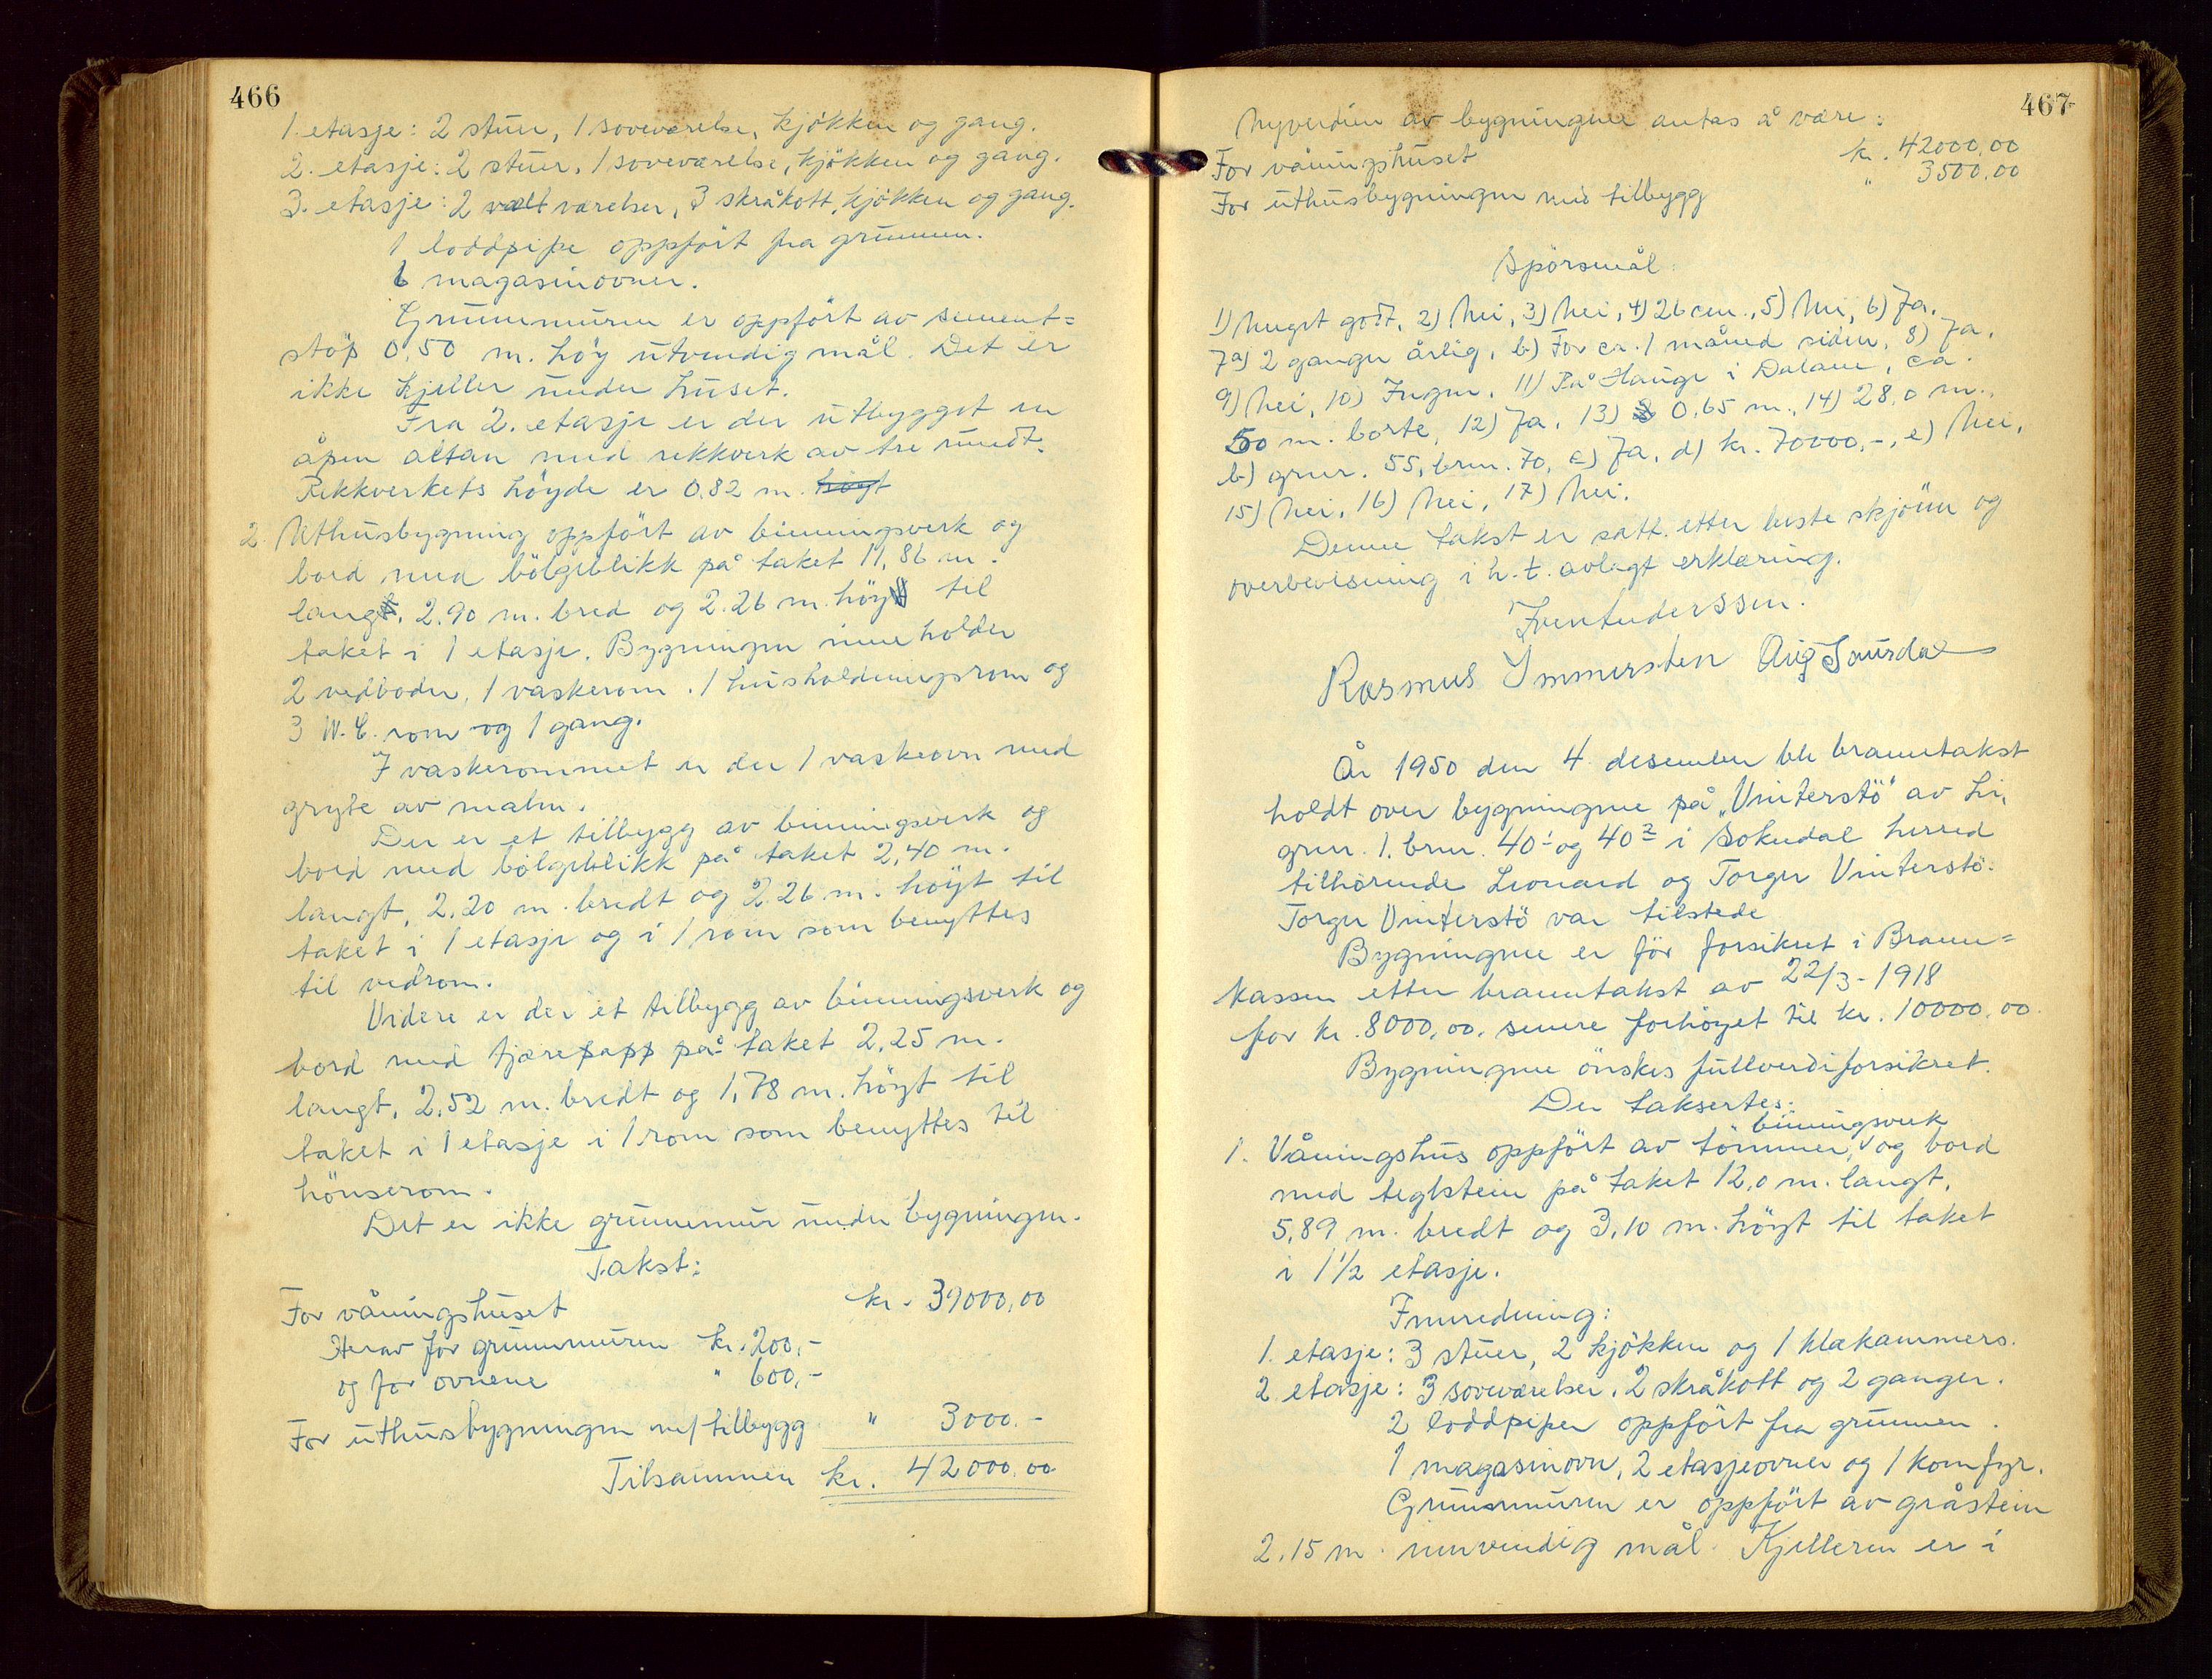 466
1. etasje: 2 stuer, 1 soveværelse, kjøkken og gang.
2. etasje: 2 stuer, 1 soveværelse, kjøkken og gang.
3. etasje: 2 værelser, 3 skråkott, kjøkken og gang.
1 loddpipe oppført fra grunnen.
6 magasinovner.
Grunnmuren er oppført av sement=
støp 0,50 m. høy utvendig mål. Det er
ikke kjeller under huset.
Fra 2. etasje er der utbygget en
åpen altan med rekkverk av tre rundt.
Rekkverkets høyde er 0,82 m. høyt
2. Uthusbygning oppført av binningsverk og
bord med bølgeblikk på taket 11,86 m.
lang, 2,90 m. bred og 2,26 m. høy til
taket i 1 etasje. Bygningen inneholder
2 vedboder, 1 vaskerom, 1 husholdningsrom og
3 W.C. rom og 1 gang.
I vaskerommet er der 1 vaskeovn med
gryte av malm.
Der er et tilbygg av binningsverk og
bord med bølgeblikk på taket 2,40 m.
langt, 2,20 m. bredt og 2,26 m. høyt til
taket i 1 etasje og i 1 rom som benyttes
til vedrom.
Videre er der et tilbygg av binningsverk og
bord med tjærepapp på taket 2,25 m.
langt, 2,52 m. bredt og 1,78 m. høyt til
taket i 1 etasje i 1 rom som benyttes til
hønserom.
Det er ikke grunnmur under bygningen.
Takst:
For våningshuset kr. 39000,00
Herav for grunnmuren kr. 200,-
og for ovnene " 600,-
For uthusbygningen m/ tilbygg " 3000.-
Tilsammen kr. 42000.00
467
Nyverdien av bygningene antas å være:
For våningshuset kr. 42000,00
For uthusbygningen med tilbygg " 3500,00
Spørsmål:
1) Meget godt, 2) Nei, 3) Nei, 4) 26 cm., 5) Nei, 6) Ja,
7a) 2 ganger årlig, b) For ca. 1 måned siden, 8) Ja,
9) Nei, 10) Ingen, 11) På Hauge i Dalane, ca.
500 m. borte, 12) Ja, 13) 0,65 m., 14) 28,0 m.,
b) gnr. 55, brnr. 70, c) Ja, d) kr. 70000,-, e) Nei,
15) Nei, 16) Nei, 17) Nei.
Denne takst er satt etter beste skjønn og
overbevisning i h. t. avlagt erklæring.
Rasmus Immersten Aug Saurdal
År 1950 den 4. desember ble branntakst
holdt over bygningene på "Vinterstø" av Li,
gnr. 1. brnr. 40¹ og 40² i Sokndal herred
tilhørende Leonard og Torger Vinterstø.
Torger Vinterstø var tilstede
Bygningene er før forsikret i Brann=
kassen etter branntakst av 22/3-1918
for kr. 8000,00, senere forhøyet til kr. 10000,00.
Bygningene ønskes fullverdiforsikret.
Der taksertes:
binningsverk
1. Våningshus oppført av tømmer, og bord
med teglstein på taket 12,0 m. langt,
5,89 m. bredt og 3,10 m. høyt til taket
i 1 1/2 etasje.
Innredning:
1. etasje: 3 stuer, 2 kjøkken og 1 klekammers.
2. etasje: 3 soveværelser, 2 skråkott og 2 ganger.
2 loddpiper oppført fra grunnen.
1 magasinovn, 2 etasjeovner og 1 komfyr.
Grunnmuren er oppført av gråstein
2,15 m. innvendig mål. Kjelleren er i